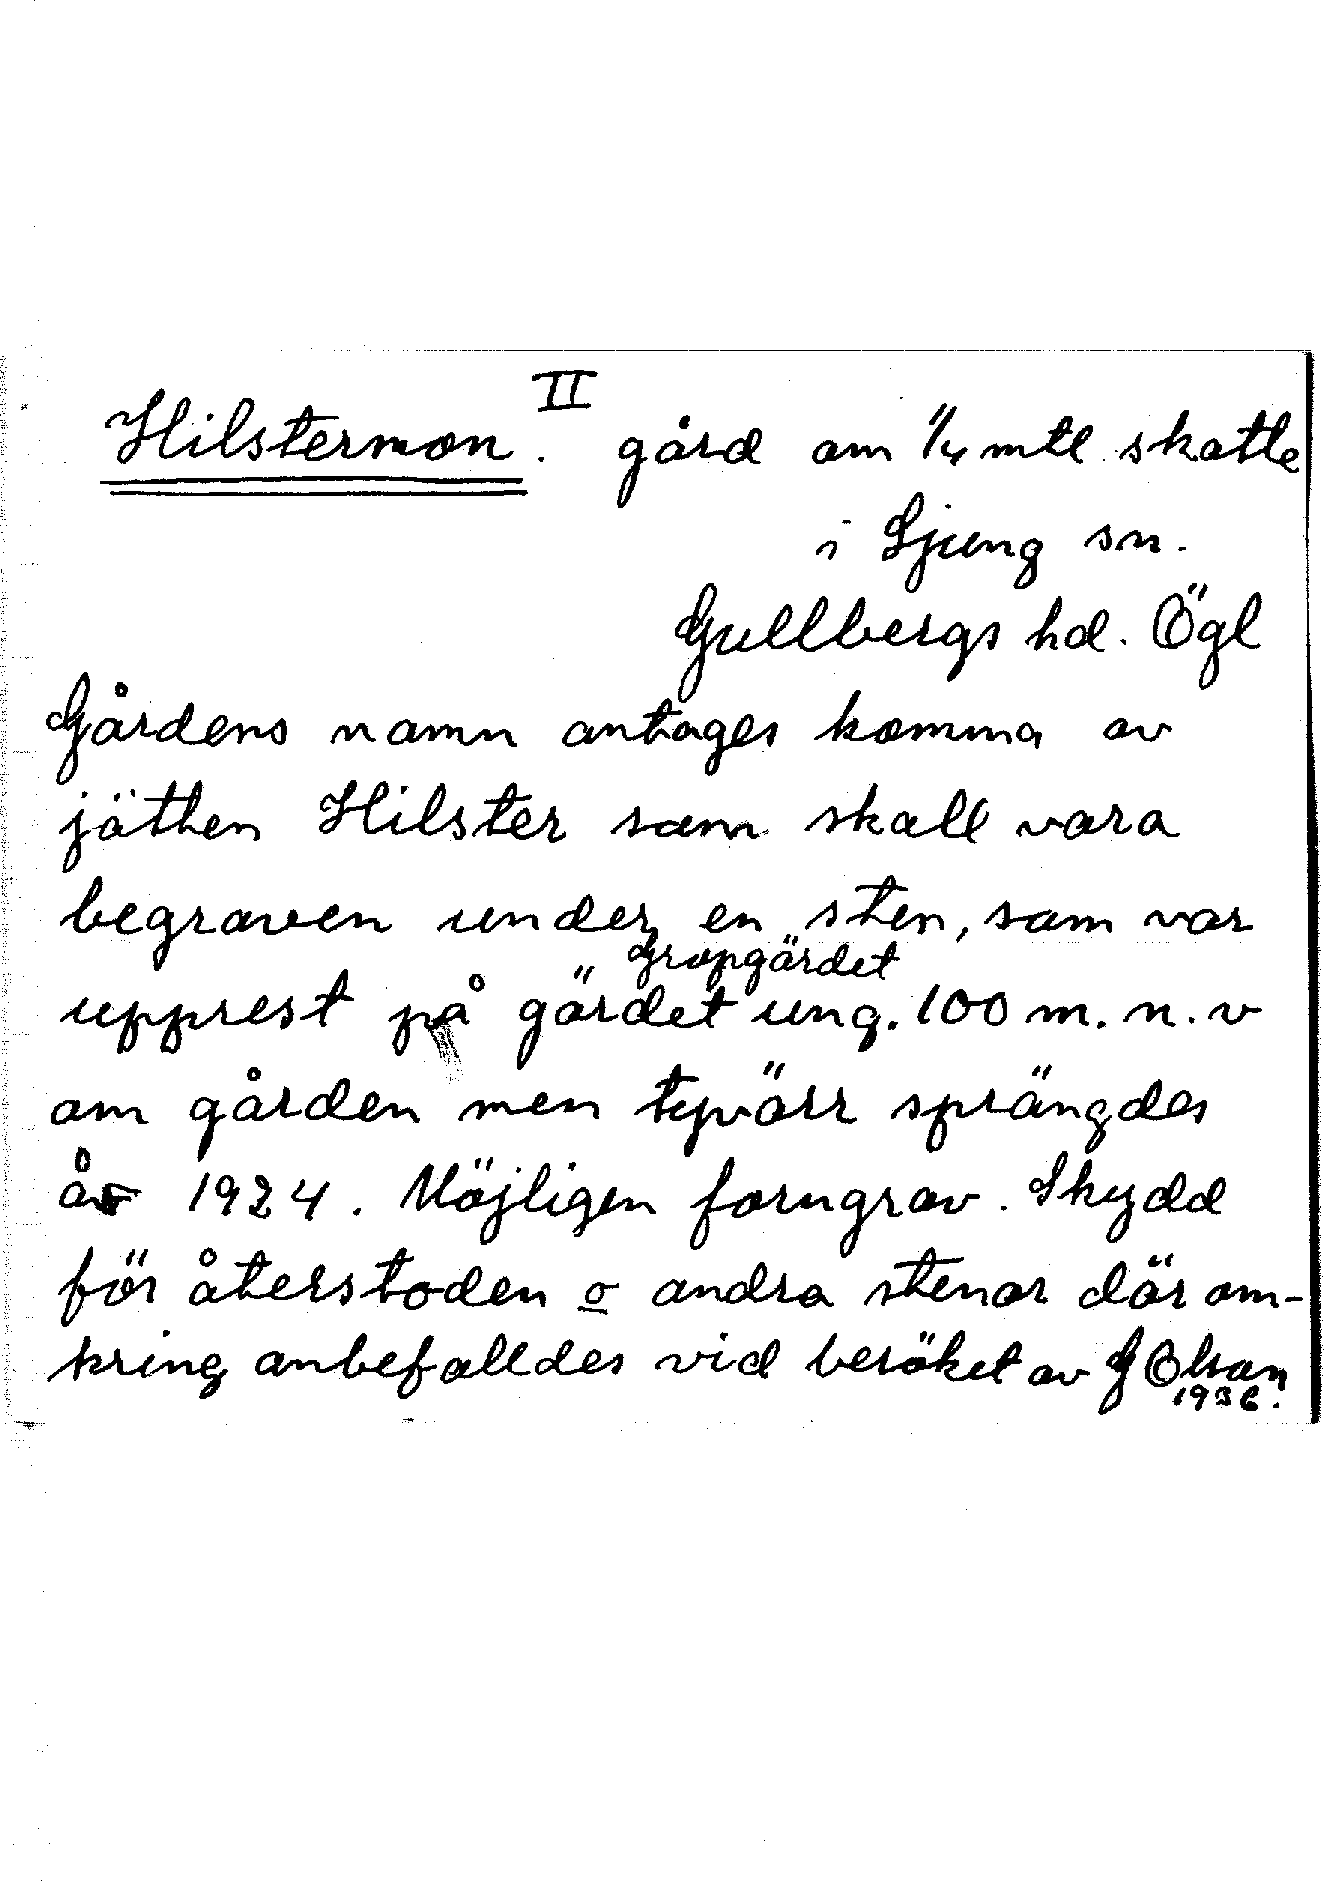 Hilstermon. II gård om 1/4 mtl skatte
i Ljung sn.
Gullbergs hd. Ögl
Gårdens namn antages komma av
jätten Hilster som skall vara
begraven under en sten, som var
Gropgärdet
upprest på gärdet ung. 100 m. n. v
om gården men tyvärr sprängdes
år 1924. Möjligen forngrav. Skydd
för återstoden o andra stenar där om-
kring anbefalldes vid besöket av G Olson
1936.